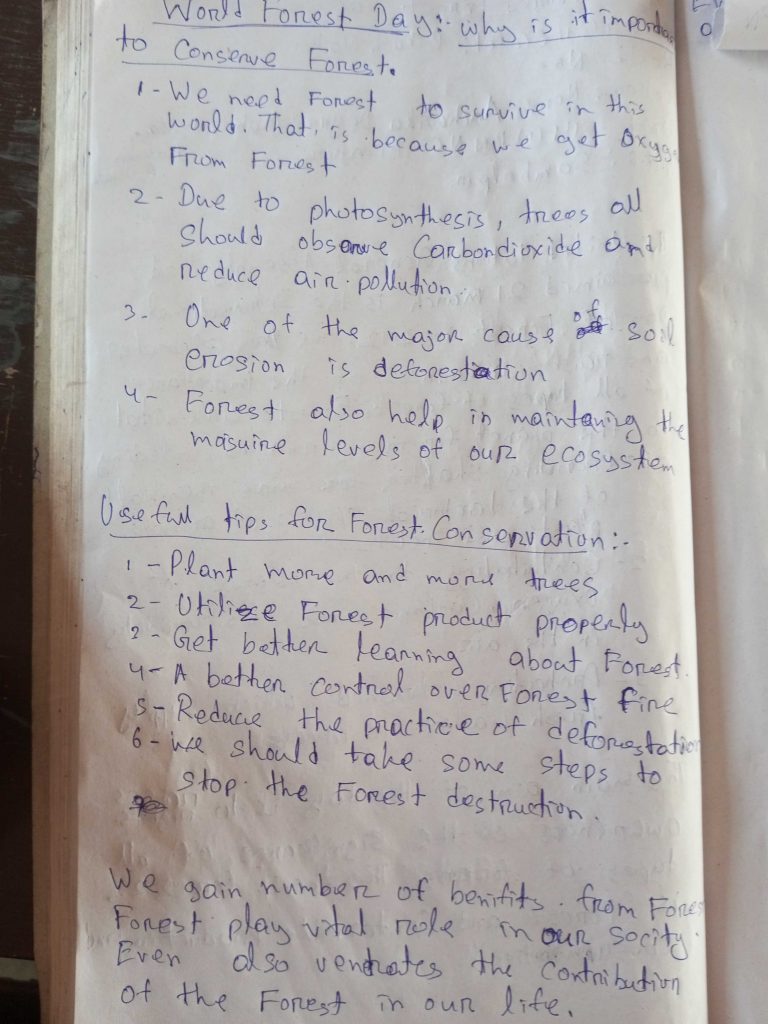 World Forest Day:- why is it importan
to Conserve Forest.
1- We need Forest to survive in this
world. That is because we get Oxyge
From Forest
2- Due to photosynthesis, trees all
should observe Carbondioxide and
reduce air pollution.
3- One of the major cause of soil
erosion is deforestation
4- Forest also help in maintaning the
masuire levels of our ecosystem
Usefull tips for Forest Conservation:-
1- Plant more and more trees
2- Utilize Forest product properly
3- Get better learning about Forest.
4- A better control over Forest fire
5- Reduce the practice of deforestation
6- we should take some steps to
stop the Forest destruction.
We gain number of benifits from Fores
Forest play vital role in our socity.
Even also the Contribution
of the Forest in our life.